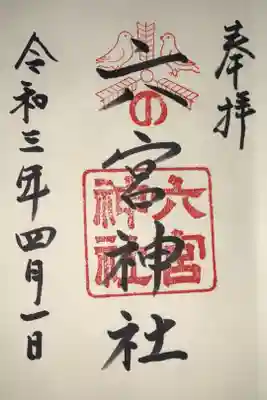 奉拝
六の宮神社
六宮神社
令和三年四月一日